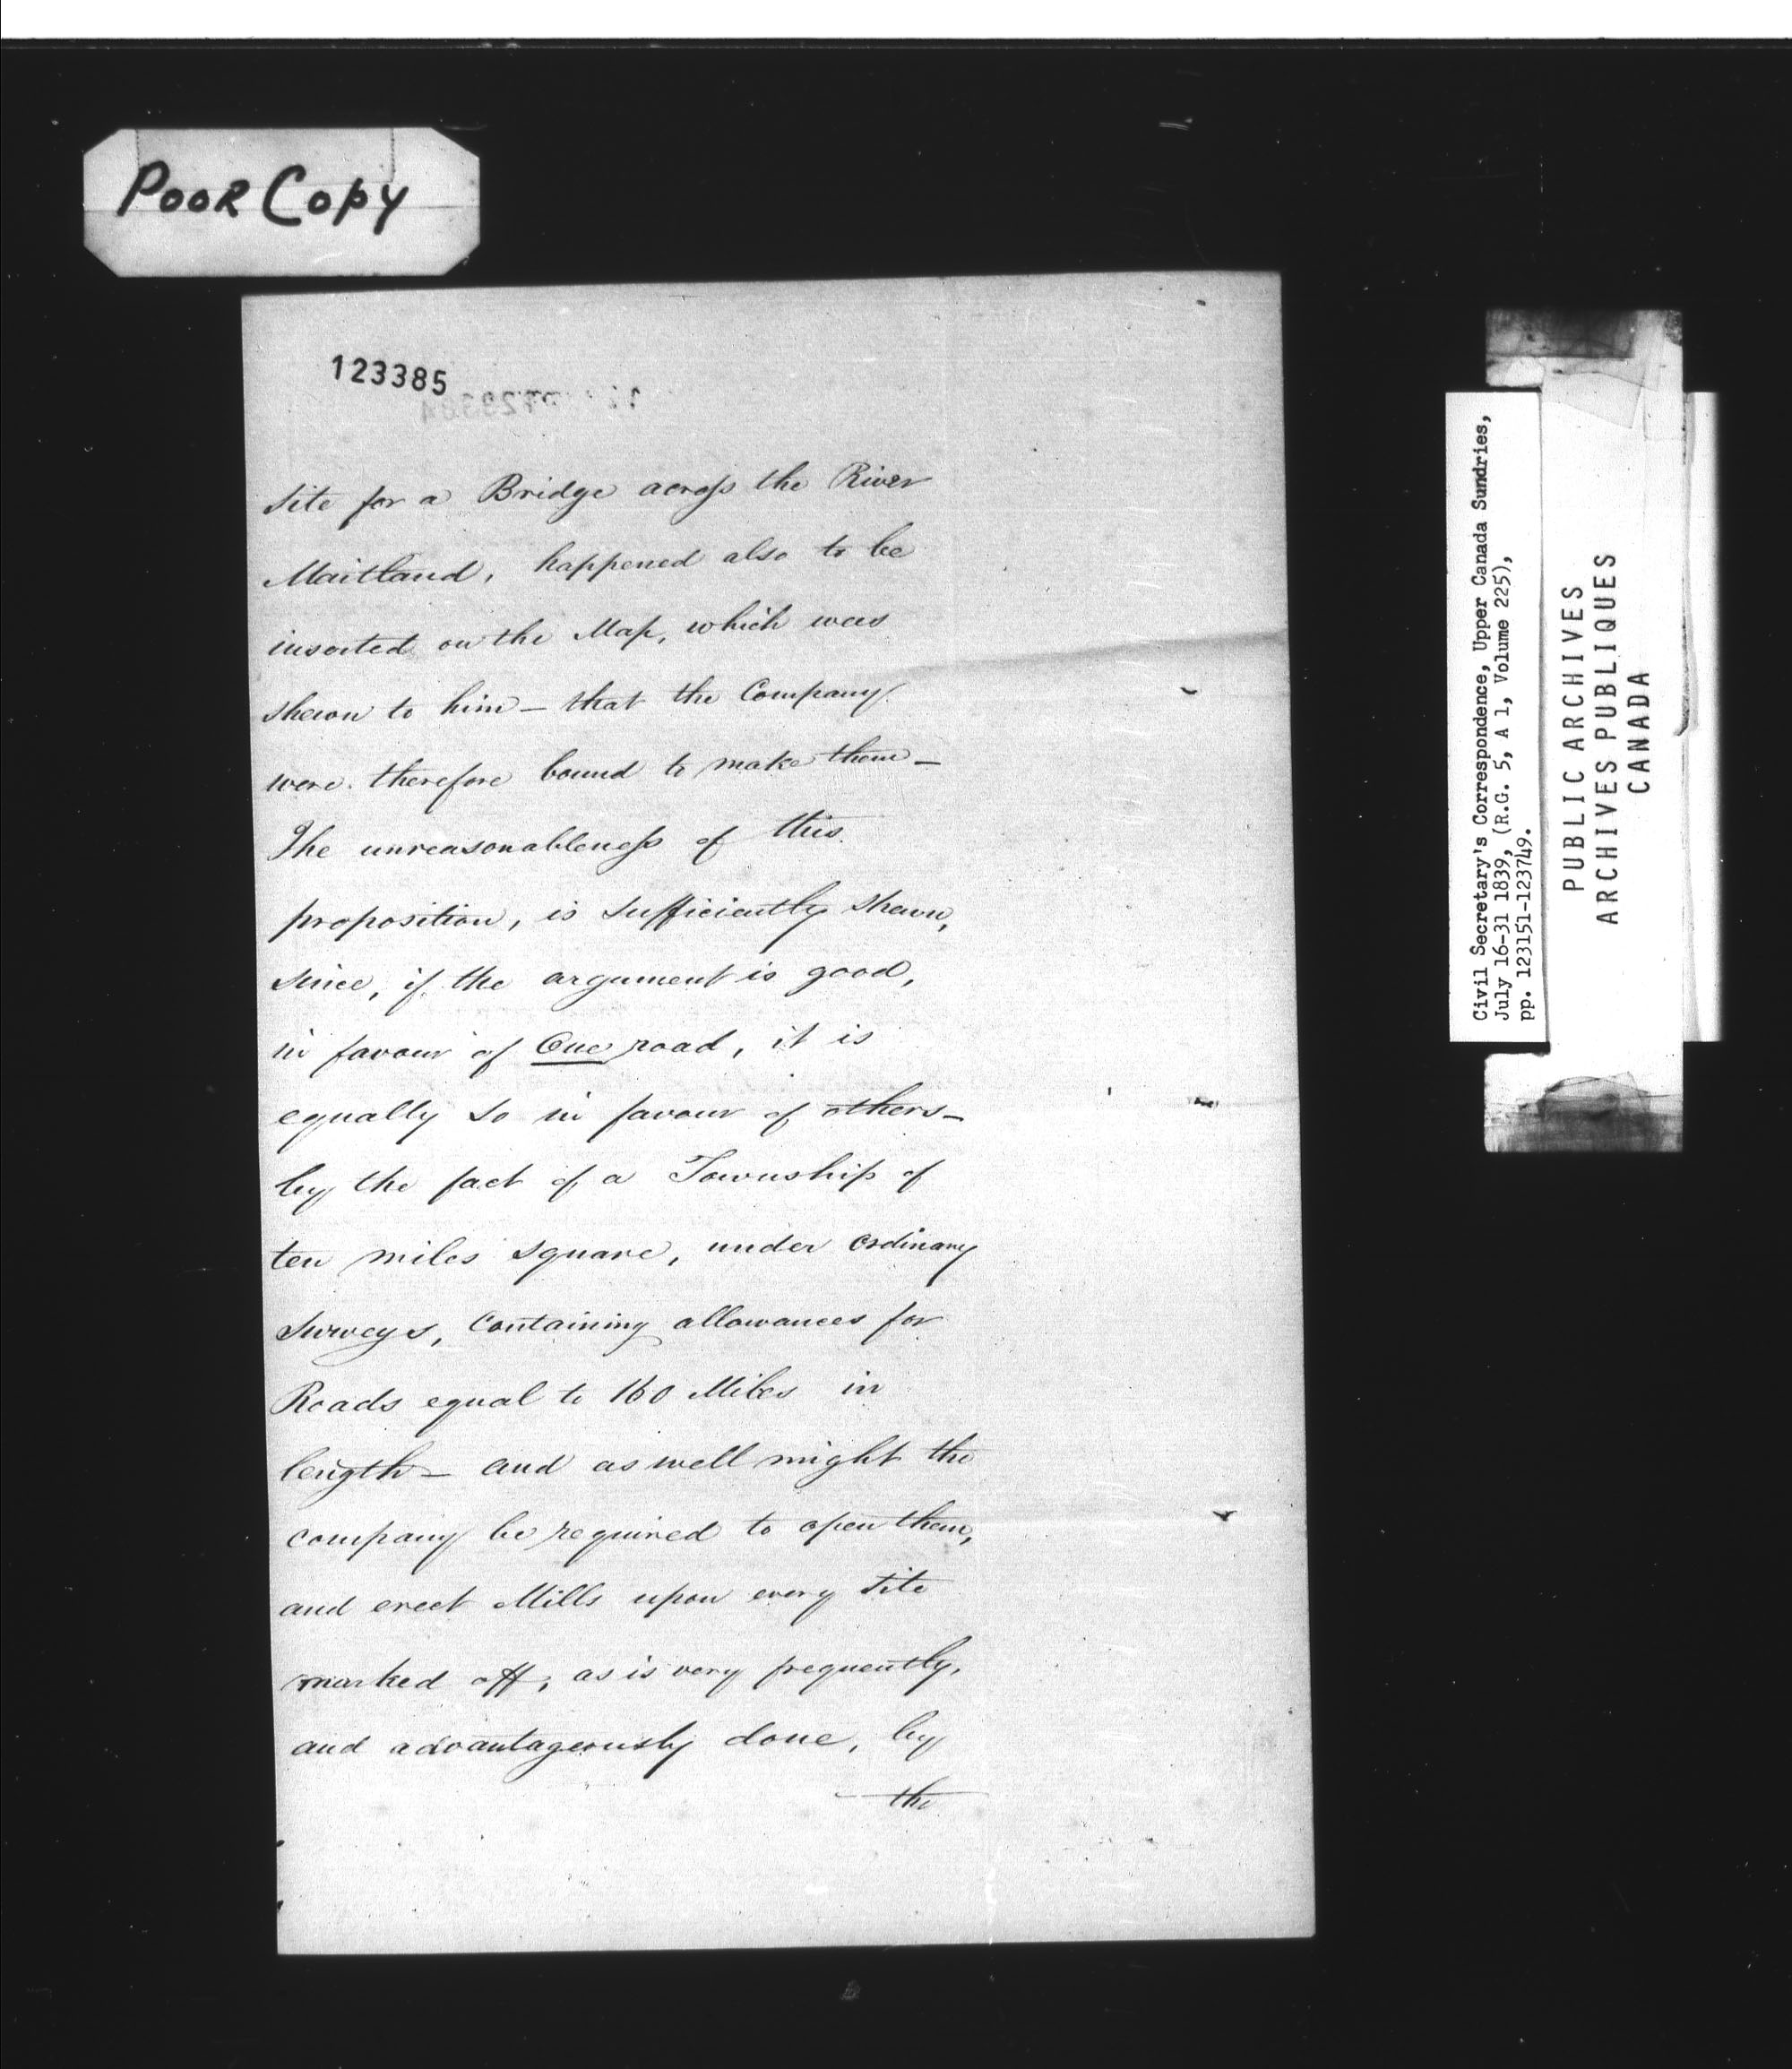 Poor Copy
123385
Site for a Bridge across the River
Maitland, happened also to be
inserted on the Map, which was
shewn to him – that the Company
were therefore bound to make them –
The unreasonableness of this
proposition, is sufficiently shewn,
since, if the argument is good,
in favour of One road, it is
equally so in favour of others –
by the fact of a Township of
ten miles square, under ordinary
Surveys, Containing allowances for
Roads equal to 160 Miles in
length – and as well might the
company be required to open them,
and erect Mills upon every Site
marked off, as is very frequently,
and advantageously done, by
the
Civil Secretary's Correspondence, Upper Canada Sundries,
July 16-31 1839, (R.G. 5, A 1, Volume 225),
pp. 123151-123749.
PUBLIC ARCHIVES
ARCHIVES PUBLIQUES
CANADA